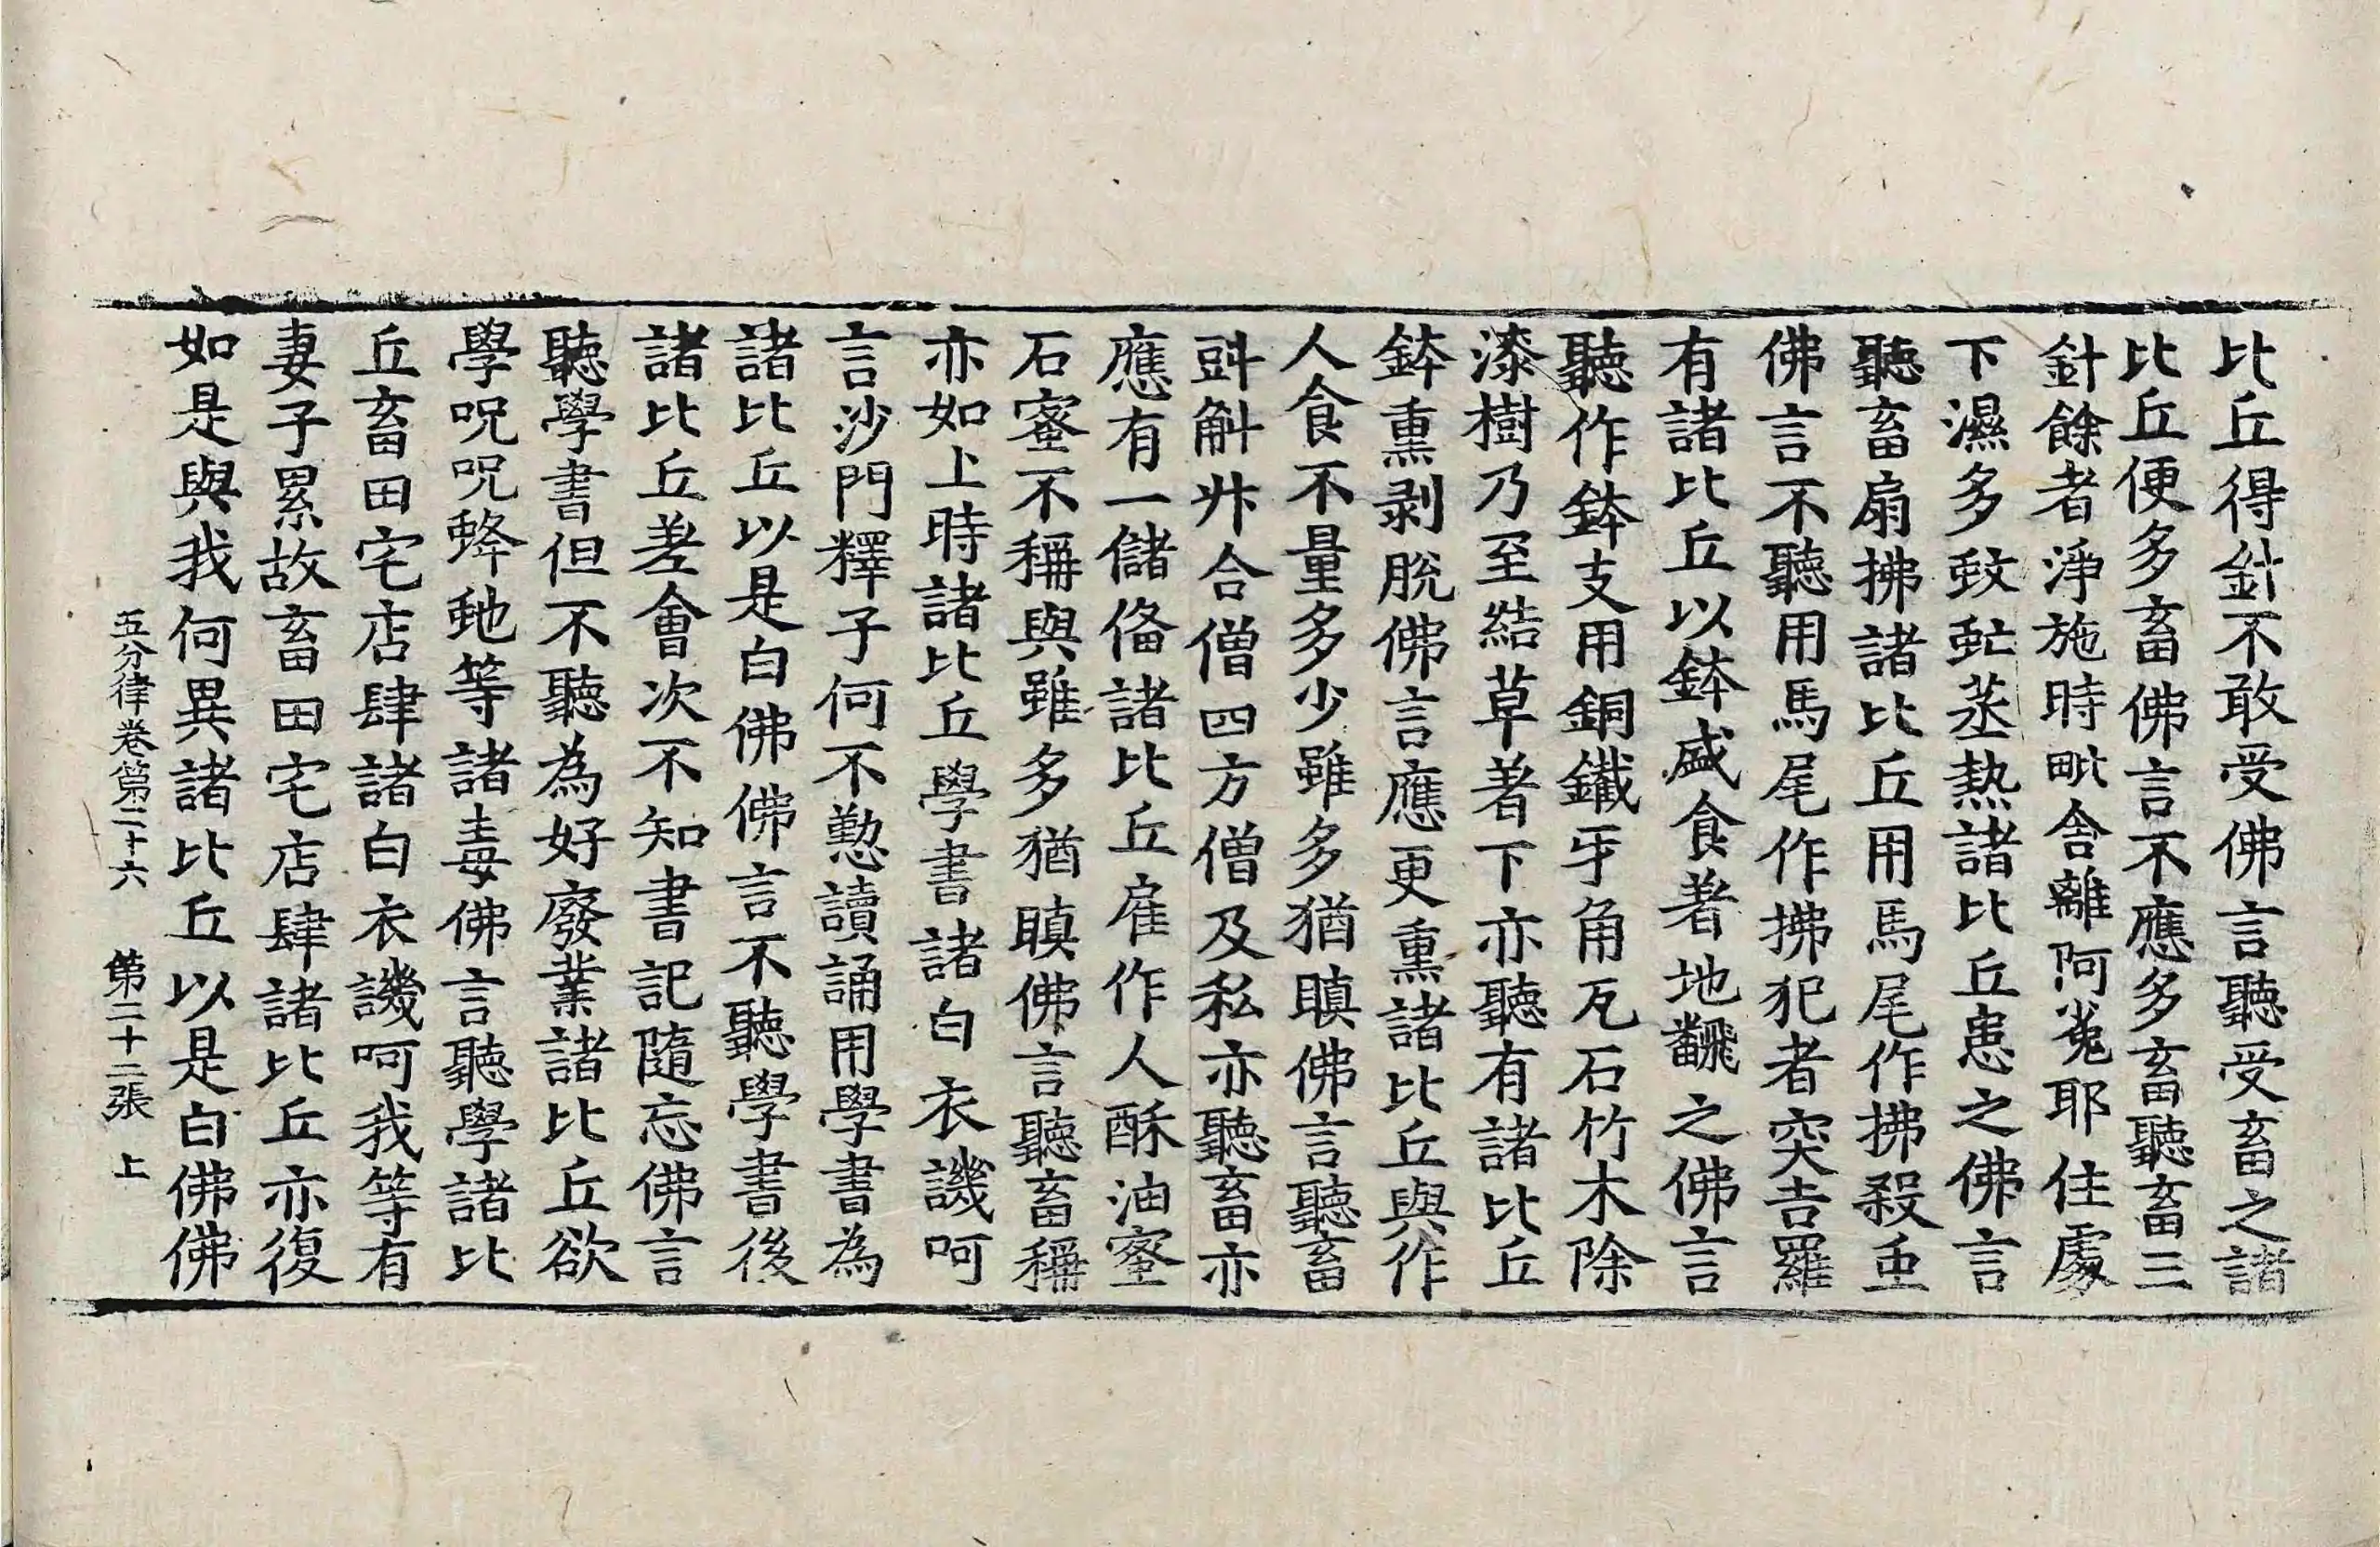 比丘得針不敢受佛言聽受畜之諸
比丘便多畜佛言不應多畜聽畜三
針餘者淨施時毗舍離阿㝹耶住處
下濕多蚊䖟蒸熱諸比丘患之佛言
聽畜扇拂諸比丘用馬尾作拂殺虫
佛言不聽用馬尾作拂犯者突吉羅
有諸比丘以鉢盛食著地飜之佛言
聽作鉢支用銅鐵牙角瓦石竹木除
漆樹乃至結草著下亦聽有諸比丘
鉢熏剥脫佛言應更熏諸比丘與作
人食不量多少雖多猶瞋佛言聽畜
㪷斛升合僧四方僧及私亦聽畜亦
應有一儲俻諸比丘雇作人酥油蜜
石蜜不稱與雖多猶瞋佛言聽畜稱
亦如上時諸比丘學書諸白衣譏呵
言沙門釋子何不懃讀誦用學書為
諸比丘以是白佛佛言不聽學書後
諸比丘差會次不知書記隨忘佛言
聽學書但不聽為好廢業諸比丘欲
學呪呪蜂虵等諸毒佛言聽學諸比
丘畜田宅店肆諸白衣譏呵我等有
妻子累故畜田宅店肆諸比丘亦復
如是與我何異諸比丘以是白佛佛
五分律卷第二十六 第二十二張 上